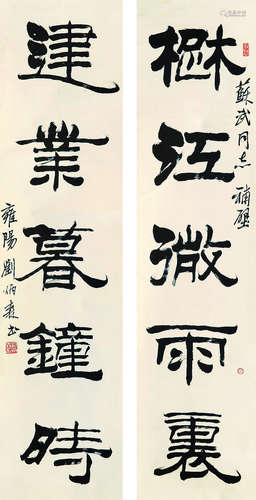 楚江微雨裏
蘇武同志補壁
建業暮鐘時
雍陽劉炳森書